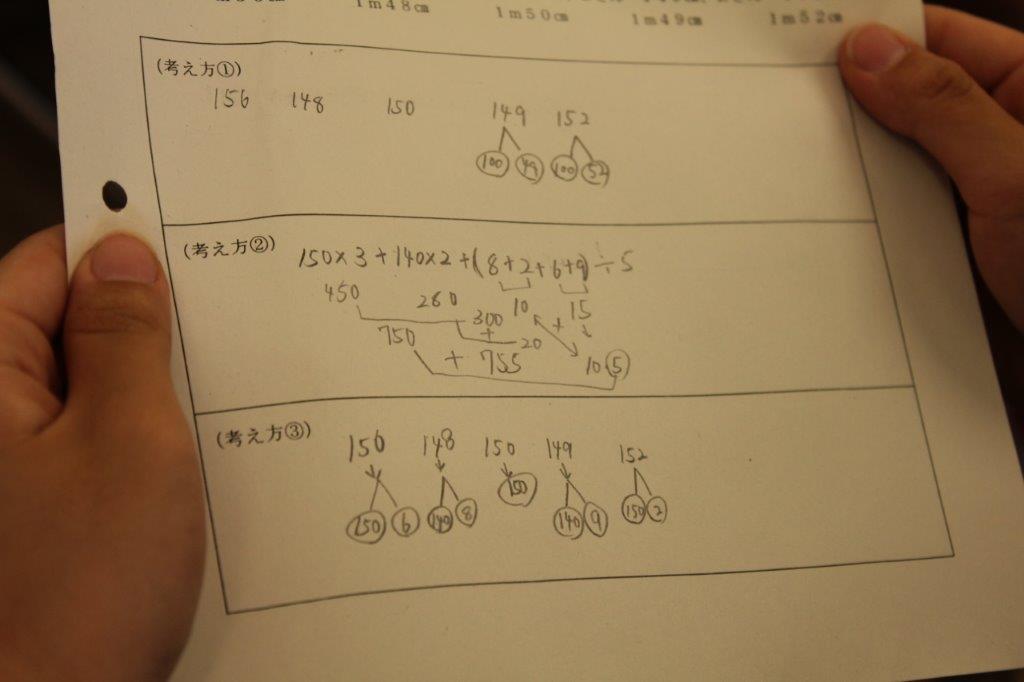 1m48㎝ 1m50㎝ 1m49㎝ 1m52㎝
(考え方①)
156 148 150 149 152
100 49 100 52
(考え方②)
150×3+140×2+(8+2+6+9)÷5
450 280 10 + 15
300
+
20
750 + 755 10 5
(考え方③)
156 148 150 149 152
150 6 140 8 150 140 9 150 2